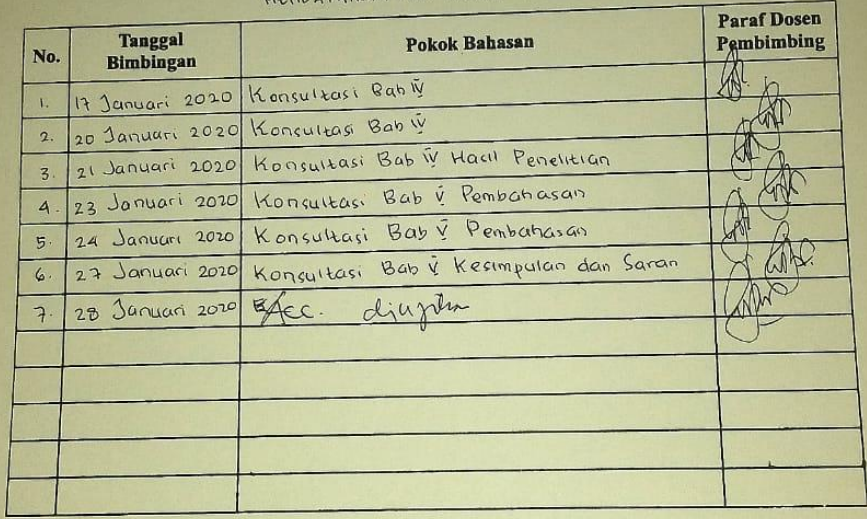 No. Tanggal Bimbingan Pokok Bahasan Paraf Dosen Pembimbing
1. 17 Januari 2020 Konsultasi Bab IV
2. 20 Januari 2020 Konsultasi Bab IV
3. 21 Januari 2020 Konsultasi Bab IV Hasil Penelitian
4. 23 Januari 2020 Konsultasi Bab V Pembahasan
5. 24 Januari 2020 Konsultasi Bab V Pembahasan
6. 27 Januari 2020 Konsultasi Bab V Kesimpulan dan Saran
7. 28 Januari 2020 Acc. diujikan